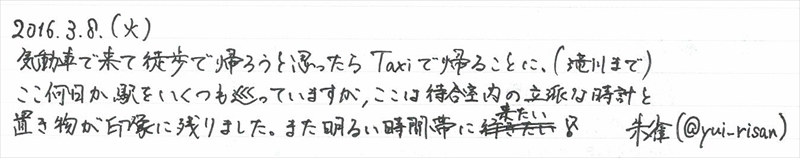 2016.3.8.(火)
気動車で来て徒歩で帰ろうと思ったらTaxiで帰ることに、(滝川まで)
ここ何日か駅をいくつも巡っていますが,ここは待合室内の立派な時計と
置き物が印象に残りました。また明るい時間帯に来たい 朱雀(@yui-risan)